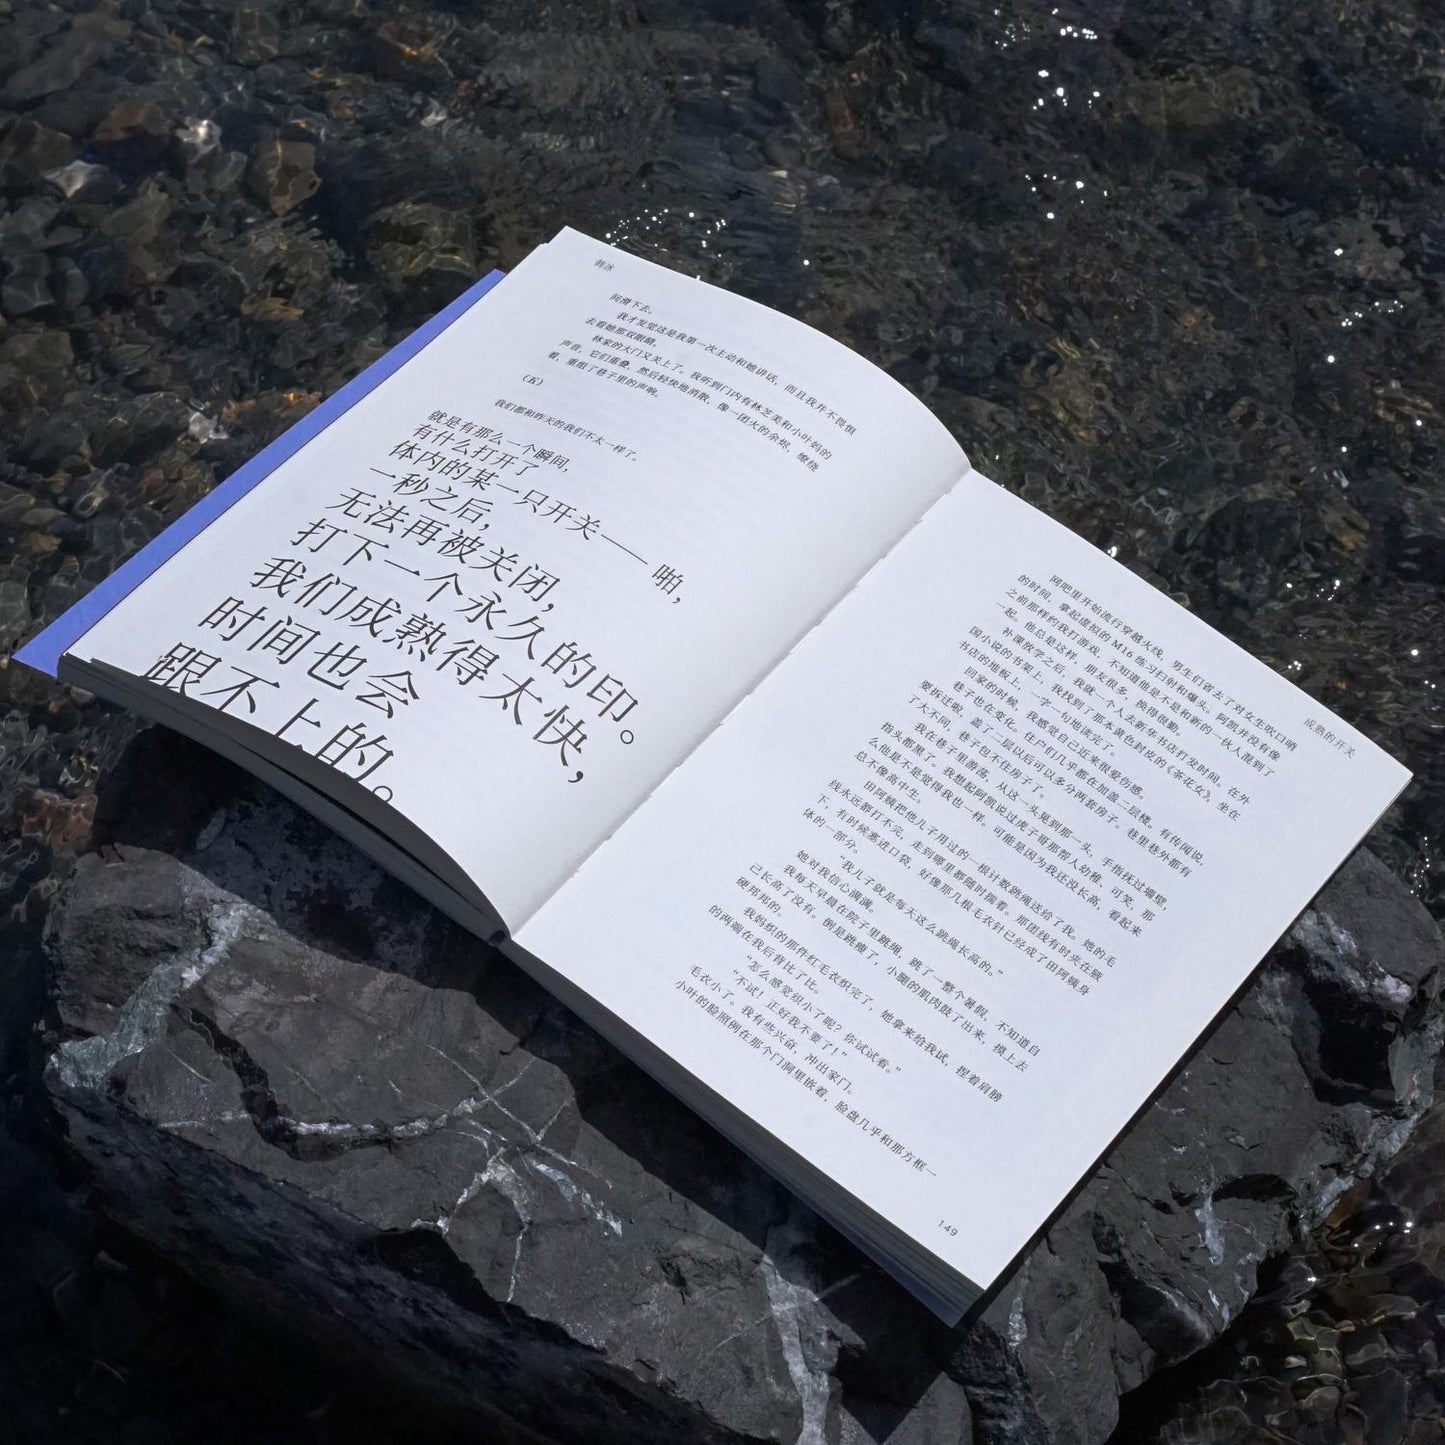 韩冰
间滑下去。
我才发觉这是我第一次主动和她讲话，而且我并不畏惧
去看她那双眼睛。
林家的大门又关上了。我听到门内有林芝美和小叶妈的
声音，它们重叠，然后轻快地消散，像一团火的余烬，缭绕
着，重组了巷子里的声响。
（五）
我们都和昨天的我们不太一样了。
就是有那么一个瞬间，
有什么打开了
体内的某一只开关—— 啪，
一秒之后，
无法再被关闭，
打下一个永久的印。
我们成熟得太快，
时间也会
跟不上的。
成熟的开关
网吧里开始流行穿越火线，男生们省去了对女生吹口哨
的时间，拿起虚拟的 M16 练习扫射和爆头。阿凯并没有像
之前那样约我打游戏，不知道他是不是和新的一伙人混到了
一起。他总是这样，朋友很多，换得很勤。
补课放学之后，我就一个人去新华书店打发时间。在外
国小说的书架上，我找到了那本黄色封皮的《茶花女》，坐在
书店的地板上，一字一句地读完了。
回家的时候，我感觉自己近来很爱伤感。
巷子也在变化。住户们几乎都在加盖二层楼。有传闻说，
要拆迁啦，盖了二层以后可以多分两套房子。巷里巷外都有
了大不同，巷子也不住房子了。
我在巷子里游荡，从这一头晃到那一头，手指抚过墙壁，
指头都黑了。我想起阿凯说过虎子哥那帮人幼稚、可笑，那
么他是不是觉得我也一样。可能是因为我还没长高，看起来
总不像高中生。
田阿姨把他儿子用过的一根计数跳绳送给了我。她的毛
线永远都打不完，走到哪里都随时揣着。那团线有时夹在腋
下，有时候塞进口袋，好像那几根毛衣针已经成了田阿姨身
体的一部分。
“我儿子就是每天这么跳绳长高的。”
她对我信心满满。
我每天早晨在院子里跳绳，跳了一整个暑假，不知道自
己长高了没有。倒是跳瘦了，小腿的肌肉鼓了出来，摸上去
硬邦邦的。
我妈织的那件红毛衣织完了，她拿来给我试，捏着肩膀
的两端在我后背比了比。
“怎么感觉织小了呢？你试试看。”
“不试！正好我不要了！”
毛衣小了。我有些兴奋，冲出家门。
小叶的脸照例在那个门洞里嵌着，脸盘几乎和那方框一
149